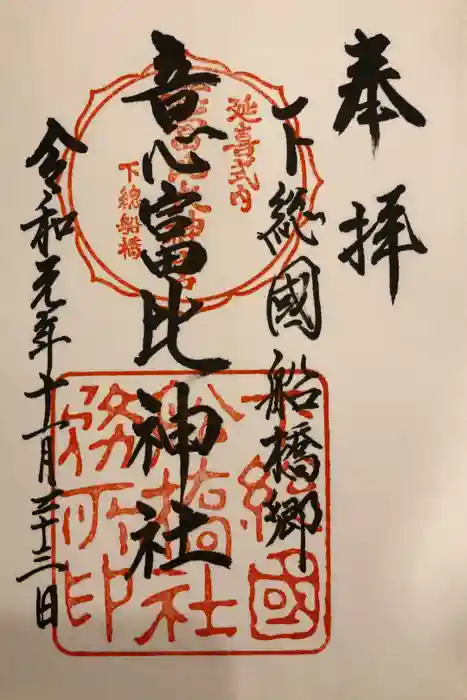 奉拝
下総國船橋郷
意富比神社
令和元年十一月二十三日
延喜式内
意富比神社
下総船橋
下総國
船橋社
務所印